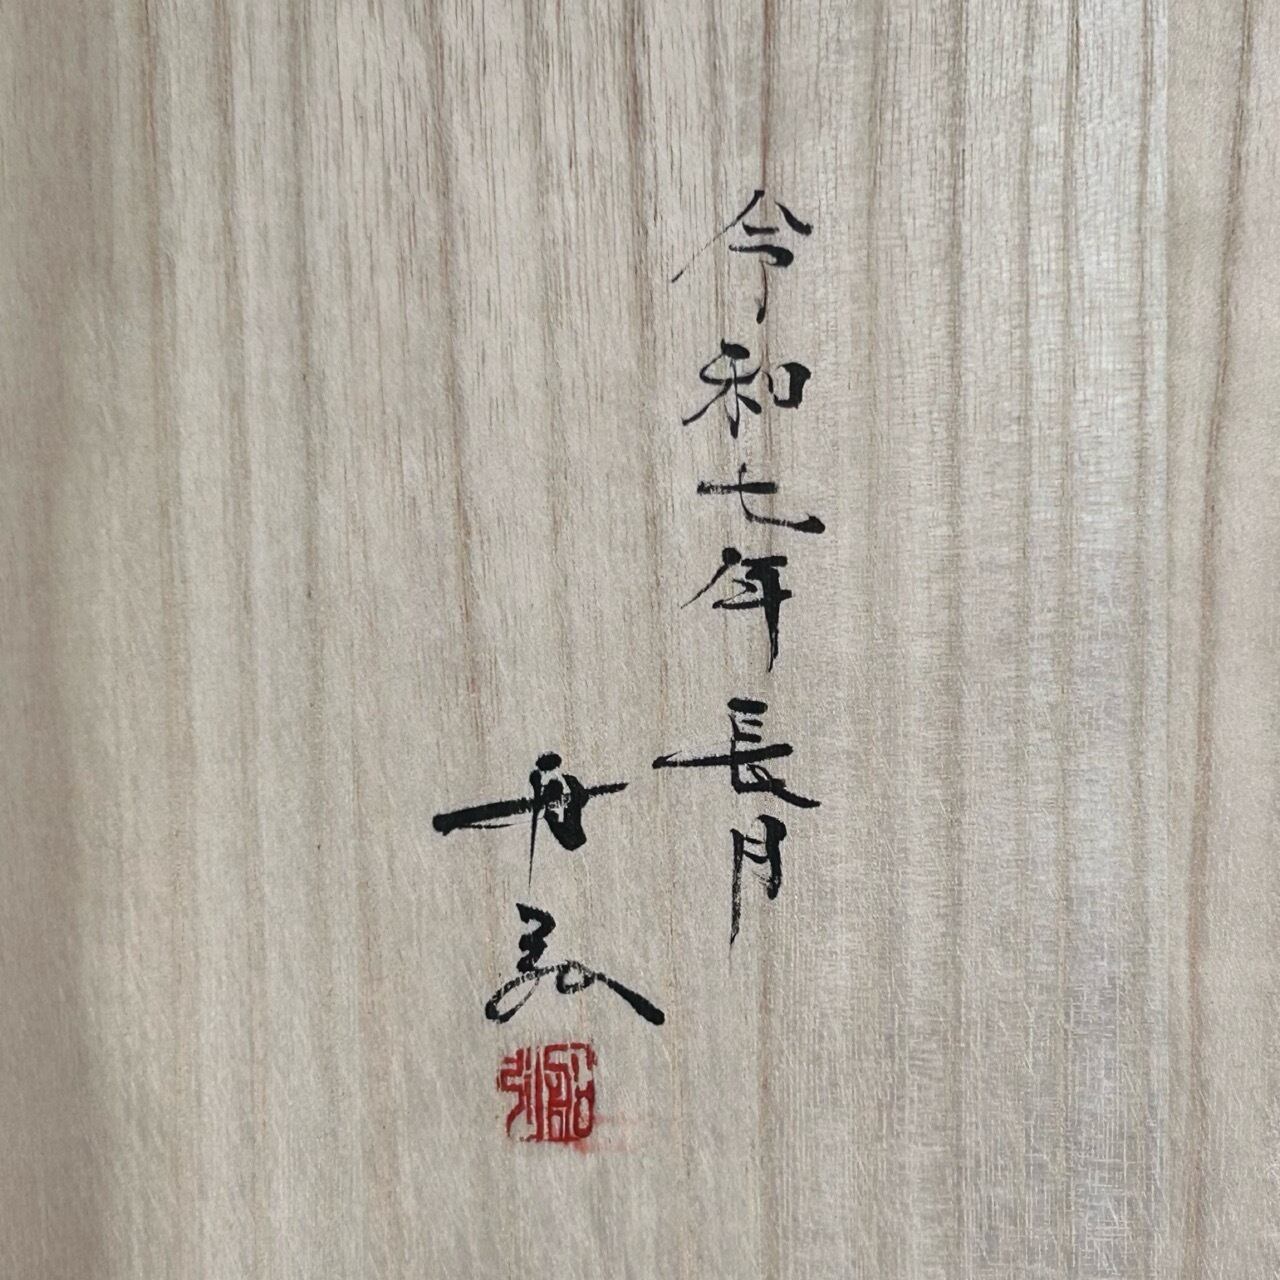 令和七年長月
舟弘